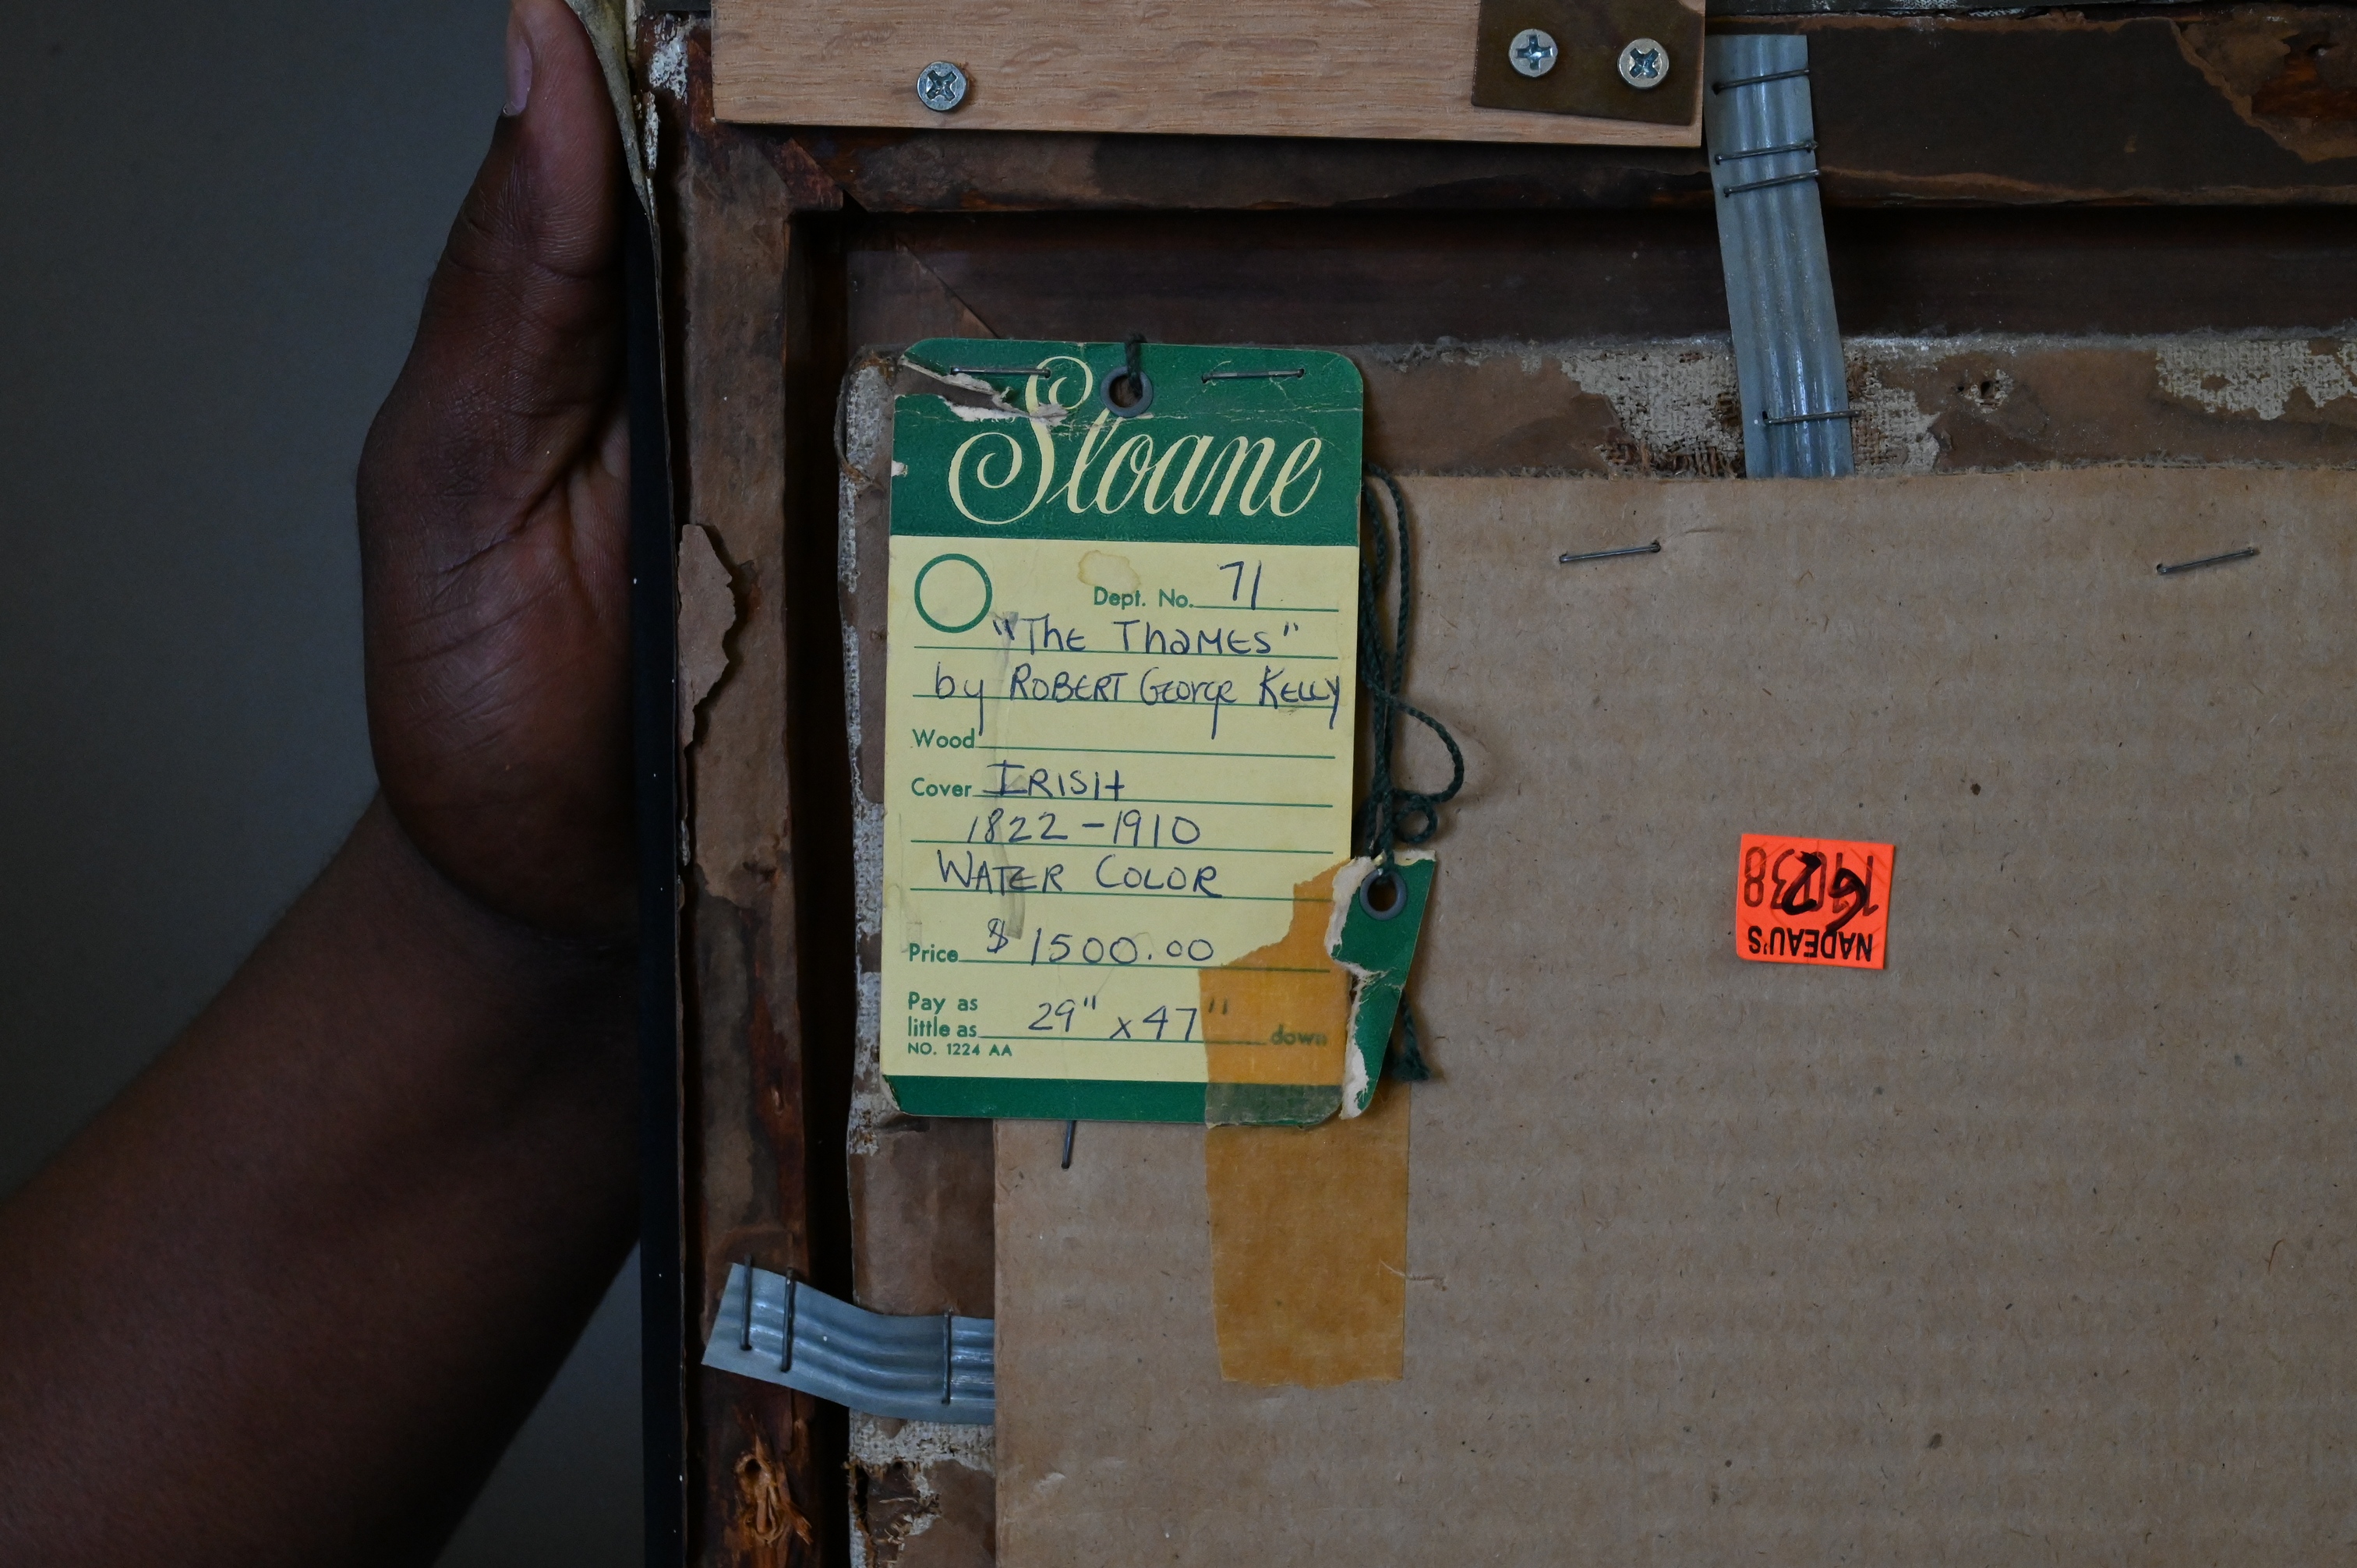 Sloane
Dept. No. 71
"The Thames"
by Robert George Kelly
Wood
Cover Irish
1822-1910
Water Color
Price $1500.00
Pay as
little as 29" x 47" down
NO. 1224 AA
NADEAU'S